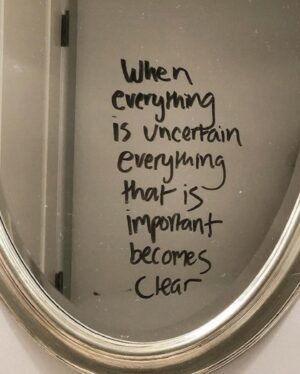 When
everything
is uncertain
everything
that is
important
becomes
Clear